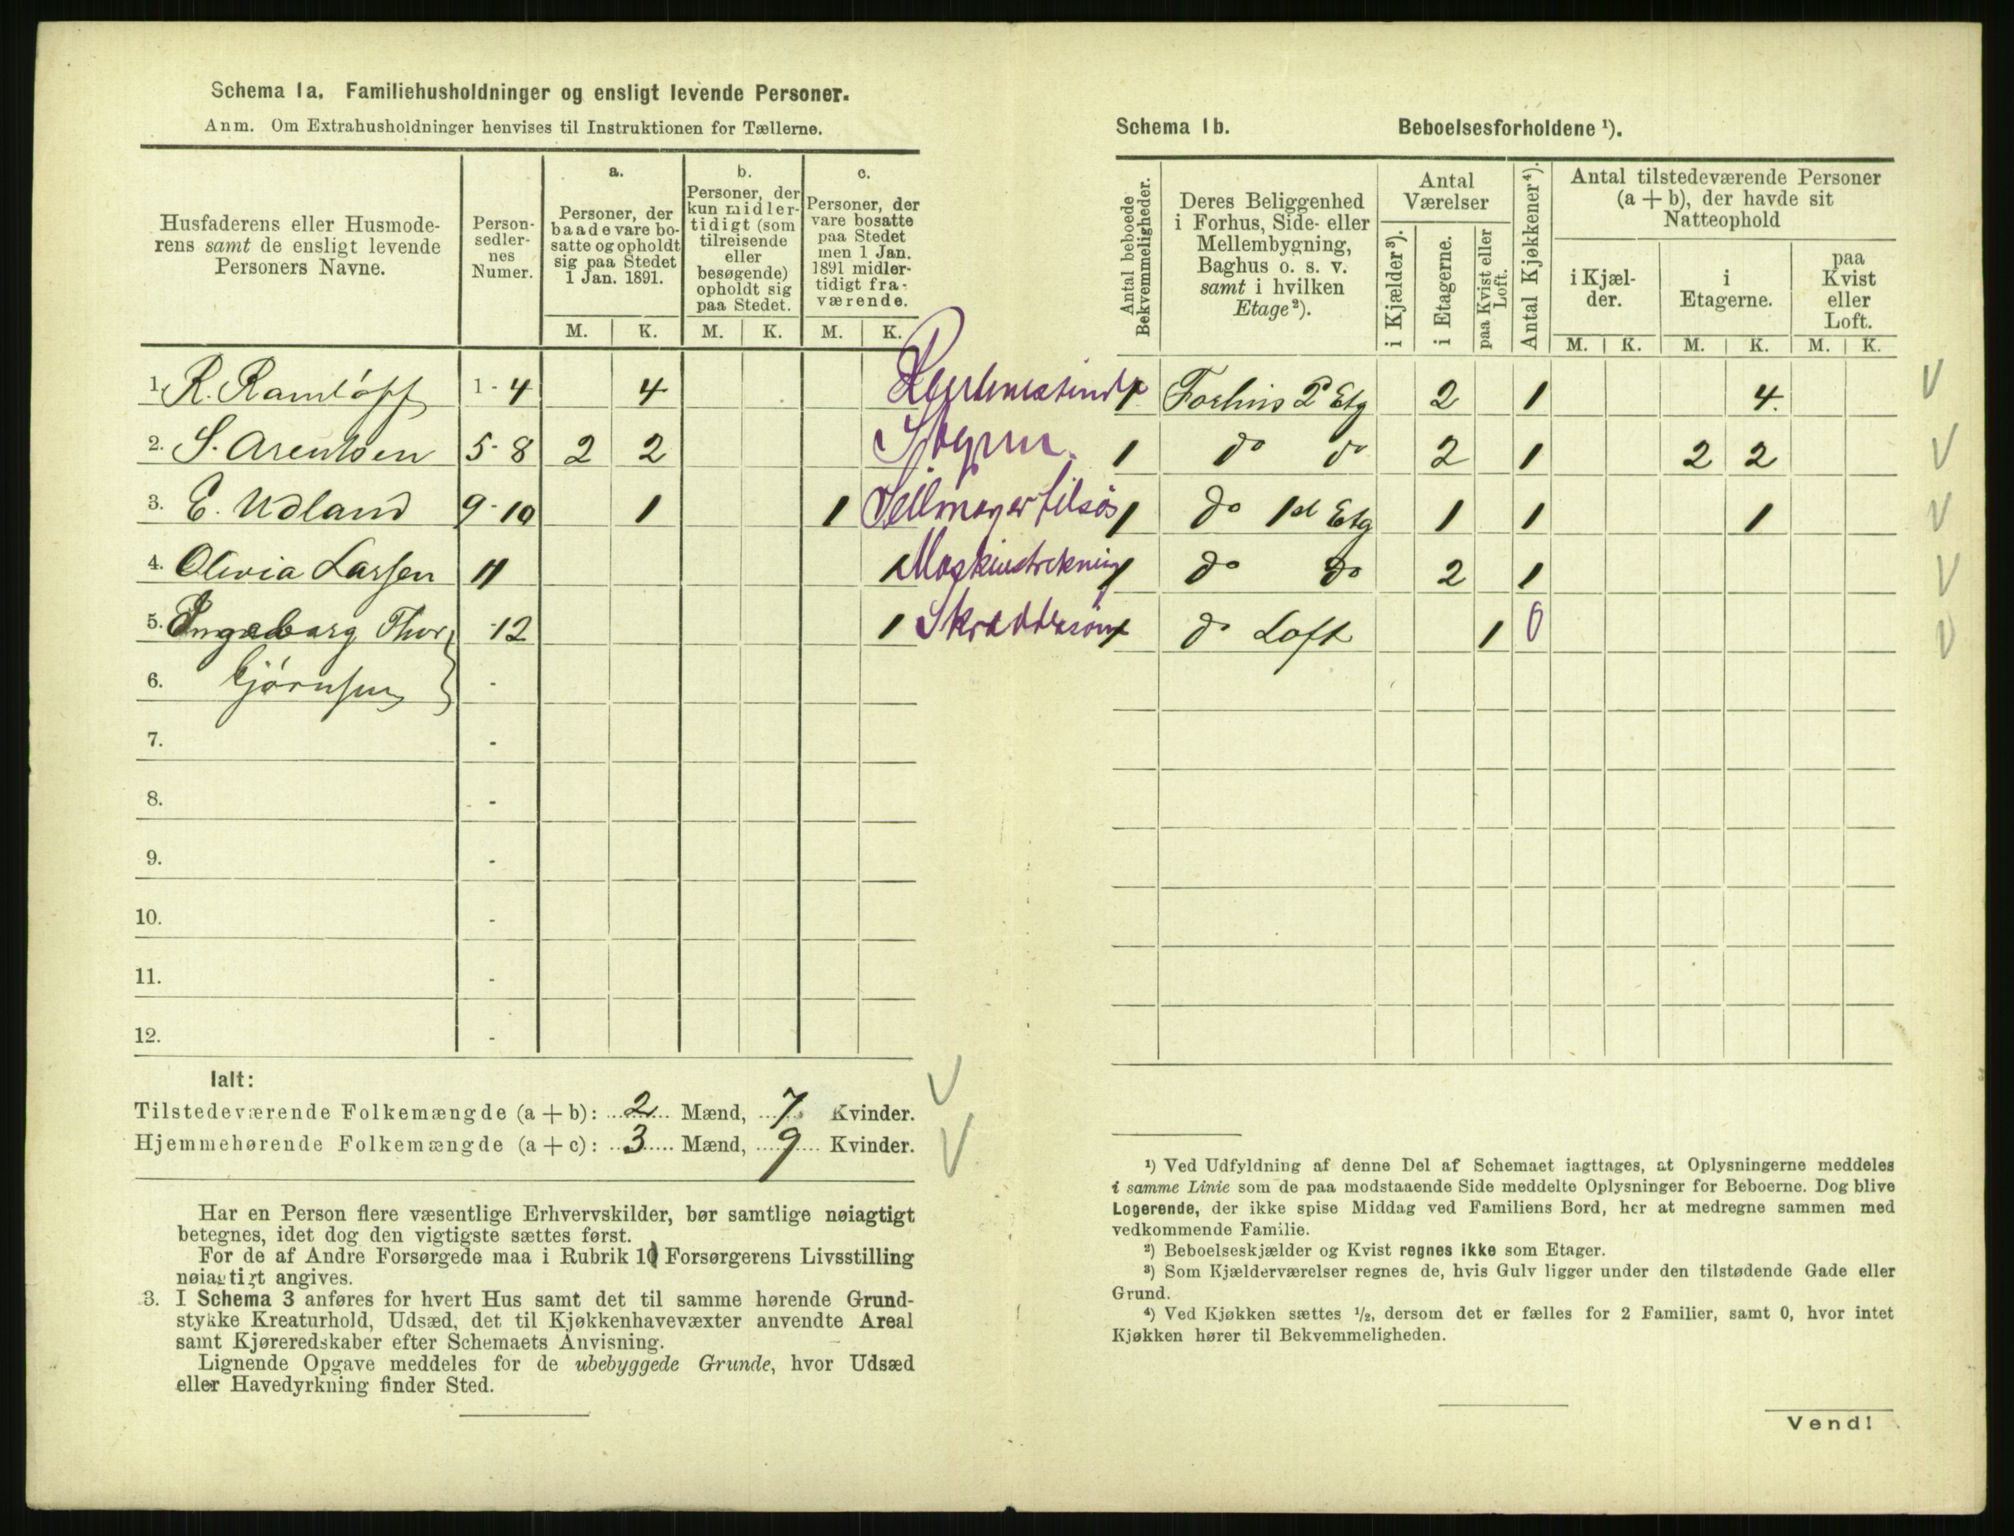 Schema 1a. Familiehusholdninger og ensligt levende Personer.
Anm. Om Extrahusholdninger henvises til Instruktionen for Tællerne.
Husfaderens eller Husmode-
rens samt de ensligt levende
Personers Navne.
Person-
sedler-
nes
Numer.
a.
Personer, der
baade vare bo-
satte og opholdt
sig paa Stedet
1 Jan. 1891.
b.
Personer, der
kun midler-
tidigt (som
tilreisende
eller
besøgende)
opholdt sig
paa Stedet.
c.
Personer, der
vare bosatte
paa Stedet
men 1 Jan.
1891 midler-
tidigt fra-
værende.
M. K. M. K. M. K.
1. R. Ramløff 1-4 4
2. S. Arentsen 5-8 2 2
3. E. Udland 9-10 1 1 Sellmager tilsøs
4. Olivia Larsen 11 1 Maskinstrikning
5. Ingeborg Thor 12 1
6. bjørnsen -
7. -
8. -
9. -
10. -
11. -
12. -
Ialt:
Tilstedeværende Folkemængde (a + b): 2 Mænd, 7 Kvinder.
Hjemmehørende Folkemængde (a + c): 3 Mænd, 9 Kvinder.
Har en Person flere væsentlige Erhvervskilder, bør samtlige nøiagtigt
betegnes, idet dog den vigtigste sættes først.
For de af Andre Forsørgede maa i Rubrik 10 Forsørgerens Livsstilling
nøiagtigt angives.
3. I Schema 3 anføres for hvert Hus samt det til samme hørende Grund-
stykke Kreaturhold, Udsæd, det til Kjøkkenhavevæxter anvendte Areal
samt Kjøreredskaber efter Schemaets Anvisning.
Lignende Opgave meddeles for de ubebyggede Grunde, hvor Udsæd
eller Havedyrkning finder Sted.
Schema 1b. Beboelsesforholdene ¹).
Antal beboede
Bekvemmeligheder.
Deres Beliggenhed
i Forhus, Side- eller
Mellembygning,
Baghus o. s. v.
samt i hvilken
Etage²).
Antal
Værelser
i Kjælder³).
i Etagerne.
paa Kvist eller
Loft.
Antal Kjøkkener⁴).
Antal tilstedeværende Personer
(a + b), der havde sit
Natteophold
i Kjæl-
der.
i
Etagerne.
paa
Kvist
eller
Loft.
M. K. M. K. M. K.
1 Forhus 2d Etg 2 1 4
1 do do 2 1 2 2
1 do 1st Etg 1 1 1
1 do do 2 1
1 do Loft 1 0
¹) Ved Udfyldning af denne Del af Schemaet iagttages, at Oplysningerne meddeles
i samme Linie som de paa modstaaende Side meddelte Oplysninger for Beboerne. Dog blive
Logerende, der ikke spise Middag ved Familiens Bord, her at medregne sammen med
vedkommende Familie.
²) Beboelseskjælder og Kvist regnes ikke som Etager.
³) Som Kjælderværelser regnes de, hvis Gulv ligger under den tilstødende Gade eller
Grund.
⁴) Ved Kjøkken sættes ½, dersom det er fælles for 2 Familier, samt 0, hvor intet
Kjøkken hører til Bekvemmeligheden.
Vend!